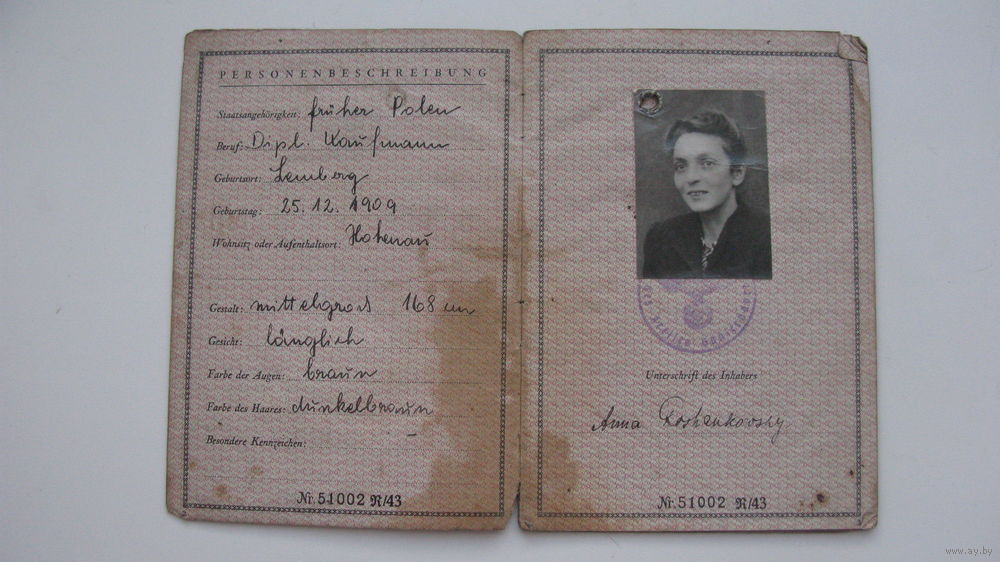 PERSONENBESCHREIBUNG
Staatsangehörigkeit: früher Polen
Beruf: Dipl. Kaufmann
Geburtsort: Lemberg
Geburtstag: 25.12.1909
Wohnsitz oder Aufenthaltsort: Hohenau
Gestalt: mittelgross 168 cm
Gesicht: länglich
Farbe der Augen: braun
Farbe des Haares: dunkelbraun
Besondere Kennzeichen: —
Nr. 51002 R/43
Unterschrift des Inhabers
Anna
Nr. 51002 R/43
www.ay.by